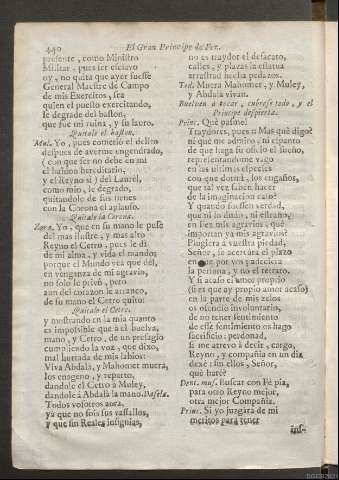 440
El Gran Principe de Fez.
presente, como Ministro
Militar, pues ser esclavo
oy, no quita que ayer fuesse
General Maestre de Campo
de mis Exercitos, sea
quien el puesto exercitando,
le degrade del baston,
que fue mi ruina, y su lauro.
Quitale el baston.
Mul. Yo, pues cometiò el delito
despues de averme engendrado,
(con que ser no debe en mi
el baldon hereditario)
y el Reyno sì) del Laurel,
como mio, le degrado,
quitandole de sus sienes
con la Corona el aplauso.
Quitale la Corona.
Zara. Yo, que en su mano le puse
del mas ilustre, y mas alto
Reyno el Cetro, pues le dì
de mi alma, y vida el mando;
porque el Mundo vea que del,
en venganza de mi agravio,
no solo le privò, pero
aun del corazon le arranco,
de su mano el Cetro quito:
Quitale el Cetro.
y mostrando en la mia quanto
es impossible que à èl buelva,
mano, y Cetro, de un presagio
cumpliendo la voz, que dixo,
mal hurtada de mis labios:
Viva Abdalà, y Mahomet muera,
los enageno, y reparto,
dandole el Cetro à Muley,
dandole à Abdalà la mano. Dasela.
Todos vosotros aora,
yà que no sois sus vassallos,
y que sin Reales insignias,
no es traydor el desacato,
calles, y plazas la estatua
arrastrad hecha pedazos.
Tod. Muera Mahomet, y Muley,
y Abdalà vivan.
Buelven à tocar, cubrese todo, y el
Principe despierta.
Princ. Què pasmo!
Traydores, pues::: Mas què digo?
ni què me admiro, ni espanto
de que haga su oficio el sueño,
representandome vago
en las ultimas especies
con que dormì, los engaños,
que tal vez saben hacer
de la imaginacion caso?
Y quando fuessen verdad,
que ni lo dudo, ni estraño,
en Fez mis agravios, què
importan yà mis agravios?
Pluguiera à vuestra piedad,
Señor, se acercàra el plazo
en que por vos padeciera
la persona, y no el retrato.
Y si acaso el amor proprio
(si es que ay proprio amor acaso)
en la parte de mis zelos
os ofendiò involuntario,
de no tener sentimiento
de esse sentimiento os hago
sacrificio: perdonad,
si me atrevo à decir, cargo,
Reyno, y compañia en un dia
dexè: sin ellos, Señor,
què harè?
Dent. mus. Buscar con Fè pia,
para otro Reyno mejor,
otra mejor Compañia.
Princ. Si yo juzgàra de mì
meritos para tener
ins-